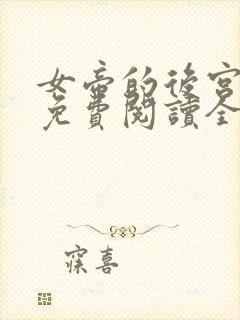 女帝的後宮
免費閱讀全
寐喜